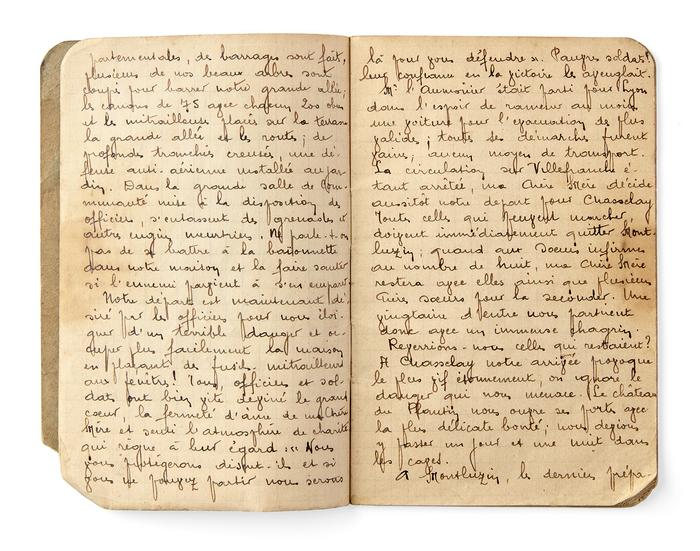 partementales, des barrages sont faits,
plusieurs de nos beaux arbres sont
coupés pour barrer notre grande allée;
les canons de 75 avec chacun 200 obus
et les mitrailleuses placés sur la terrasse
la grande allée et les routes; de
profondes tranchées creusées, une dé-
fense anti-aérienne installée au jar-
din. Dans la grande salle de Com-
munauté mise à la disposition des
officiers, s'entassent des grenades et
autres engins meurtriers. Ne parle-t-on
pas de se battre à la baïonnette
dans notre maison et la faire sauter
si l'ennemi parvient à s'en emparer.
Notre départ est maintenant dé-
siré par les officiers pour nous éloi-
gner d'un terrible danger et oc-
cuper plus facilement la maison
en plaçant des fusils-mitrailleurs
aux fenêtres! Tous, officiers et sol-
dats ont bien vite deviné le grand
cœur, la fermeté d'âme de ma Chère
Mère et senti l'atmosphère de charité
qui règne à leur égard :« Nous
vous protégerons disent-ils et si
vous ne pouvez partir nous serons
là pour vous défendre ». Pauvres soldats!
leur confiance en la victoire les aveuglait.
Mr l'Aumônier était parti pour Lyon
dans l'espoir de ramener au moins
une voiture pour l'évacuation des plus
valides; toutes ses démarches furent
vaines; aucun moyen de transport.
La circulation sur Villefranche é-
tant arrêtée, ma Chère Mère décide
aussitôt notre départ pour Chasselay
Toutes celles qui peuvent marcher,
doivent immédiatement quitter Mont-
luzin; quand aux Sœurs infirmes
au nombre de huit, ma Chère Mère
restera avec elles ainsi que plusieurs
sœurs pour la seconder. Une
vingtaine d'entre nous partirent
donc avec un immense chagrin.
Reverrions-nous celles qui restaient?
A Chasselay notre arrivée provoque
le plus vif étonnement, on ignore le
danger qui nous menace. Le château
du Plantin nous ouvre ses portes avec
la plus délicate bonté; nous devions
y passer un jour et une nuit dans
les caves.
A Montluzin, les derniers prépa-